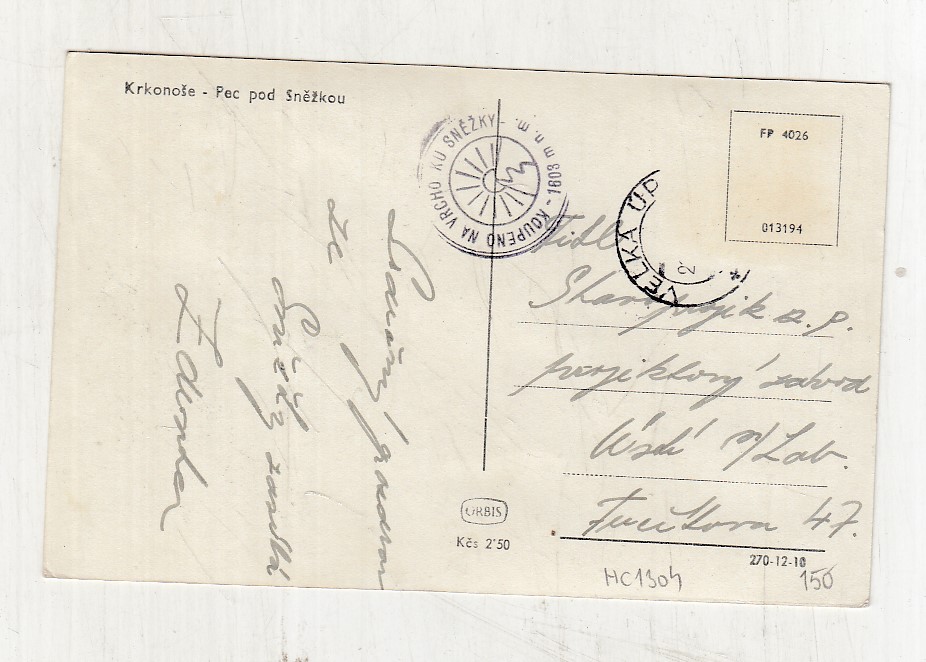 Krkonoše - Pec pod Sněžkou
KOUPENO NA VRCHO KU SNĚŽKY - 1603 m n. m. -
FP 4026
013194
VELKÁ ÚP
2
Srdečný pozdrav
ze
Sněžky zasílá
Zdenda
n. p.
projektový závod
Ústí n/Lab.
Fučíkova 47.
ORBIS
Kčs 2'50
270-12-10
HC1304
150